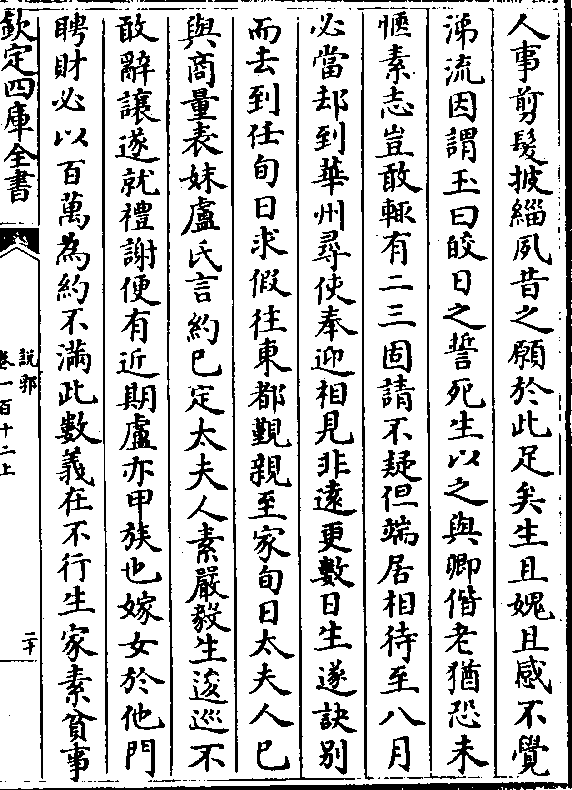 人事剪髮披緇夙昔之願於此足矣生且媿且感不覺
涕流因謂玉曰皎日之誓死生以之與卿偕老猶恐未
愜素志豈敢輒有二三固請不疑但端居相待至八月
必當却到華州尋使奉迎相見非遠更數日生遂訣別
而去到任旬日求假往東都覲親至家旬日太夫人已
與商量表妹盧氏言約已定太夫人素嚴毅生逡巡不
敢辭讓遂就禮謝便有近期盧亦甲族也嫁女於他門
聘財必以百萬為約不滿此數義在不行生家素貧事
欽定四庫全書
說郛
卷一百十二上
二十